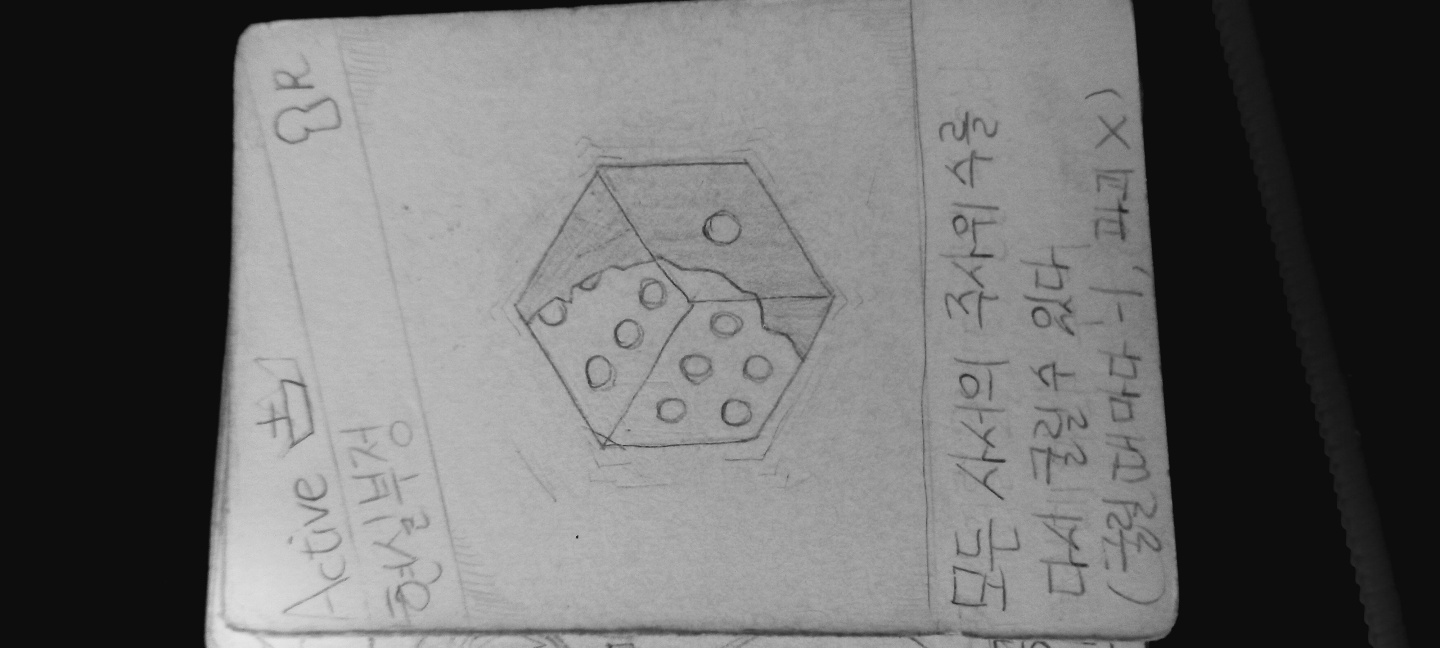 Active
R
현실부정
모든 사서의 주사위 수를
다시 굴릴 수 있다
(굴릴 때마다 -1, 파괴 X)